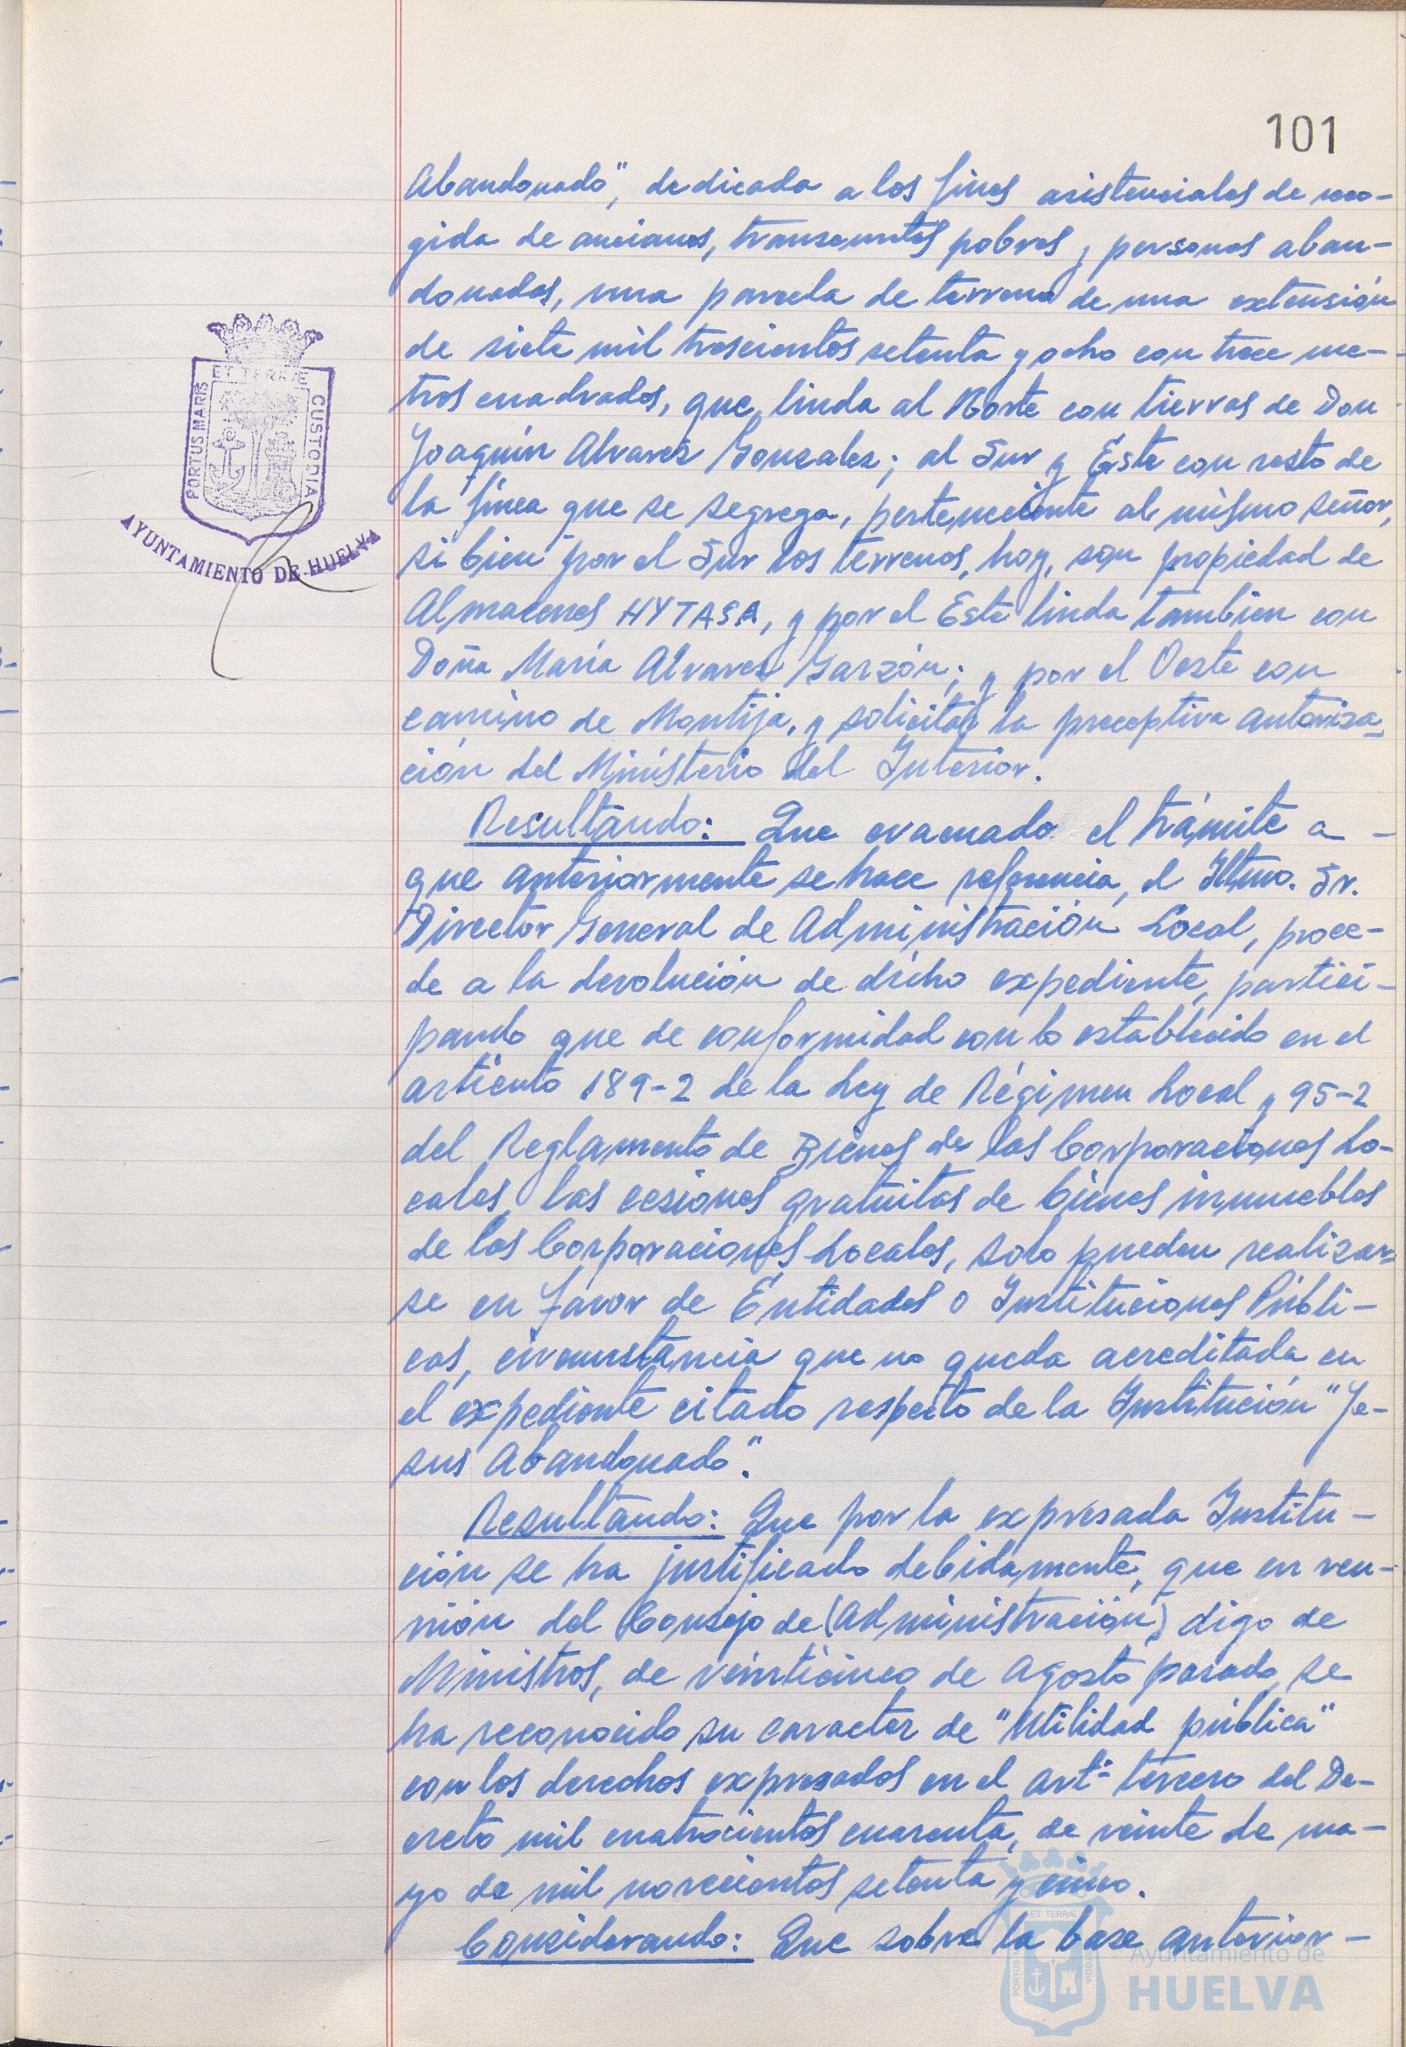 101
Abandonado", dedicada a los fines asistenciales de reco-
gida de ancianos, transeuntes pobres y personas aban-
donadas, una parcela de terreno de una extensión
de siete mil trescientos setenta y ocho con trece me-
tros cuadrados, que linda al Norte con tierras de Don
Joaquín Alvarez Gonzalez; al Sur y Este con resto de
la finca que se segrega, perteneciente al mismo señor,
si bien por el Sur los terrenos, hoy, son propiedad de
Almacenes HYTASA, y por el Este linda tambien con
Doña María Alvarez Garzón; y por el Oeste con
camino de Montija, y solicitar la preceptiva autoriza-
ción del Ministerio del Interior.
Resultando: Que evacuado el trámite a -
que anteriormente se hace referencia, el Iltmo. Sr.
Director General de Administración Local, proce-
de a la devolución de dicho expediente, partici-
pando que de conformidad con lo establecido en el
artículo 189-2 de la Ley de Régimen Local y 95-2
del Reglamento de Bienes de las Corporaciones Lo-
cales, las cesiones gratuitas de bienes inmuebles
de las Corporaciones Locales, solo pueden realizar-
se en favor de Entidades o Instituciones Públi-
cas, circunstancia que no queda acreditada en
el expediente citado respecto de la Institución "Je-
sus Abandonado".
Resultando: Que por la expresada Institu-
ción se ha justificado debidamente, que en reu-
nión del Consejo de (Administración) digo de
Ministros, de veinticinco de Agosto pasado, se
ha reconocido su caracter de "Utilidad pública"
con los derechos expresados en el artº tercero del De-
creto mil cuatrocientos cuarenta, de veinte de ma-
yo de mil novecientos setenta y cinco.
Considerando: Que sobre la base anterior-
PORTUS MARIS ET TERRÆ CUSTODIA
AYUNTAMIENTO DE HUELVA
PORTUS ET TERRÆ CUSTODIA
Ayuntamiento de
HUELVA